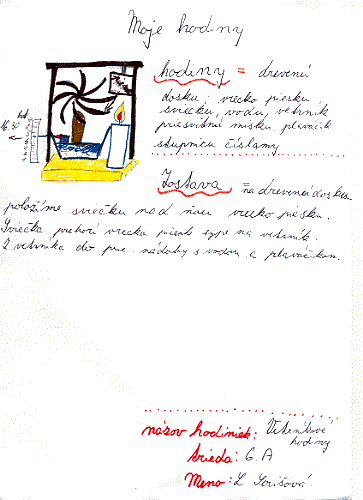 Moje hodiny
hodiny = drevenú
dosku, vrecko piesku
sviečku, vodu, veterník
priesvitnú misku, plaváčik
stupnicu číslamy
16.30
Zostava = na drevenú dosku
položíme sviečku nad ňou vrecko piesku.
Sviečka prehorí vrecko piesok sype na veterník.
Z veterníka do pne nádoby s vodou a plaváčikom.
názov hodiniek: Veterníkové
hodiny
trieda: 6. A
Meno: L